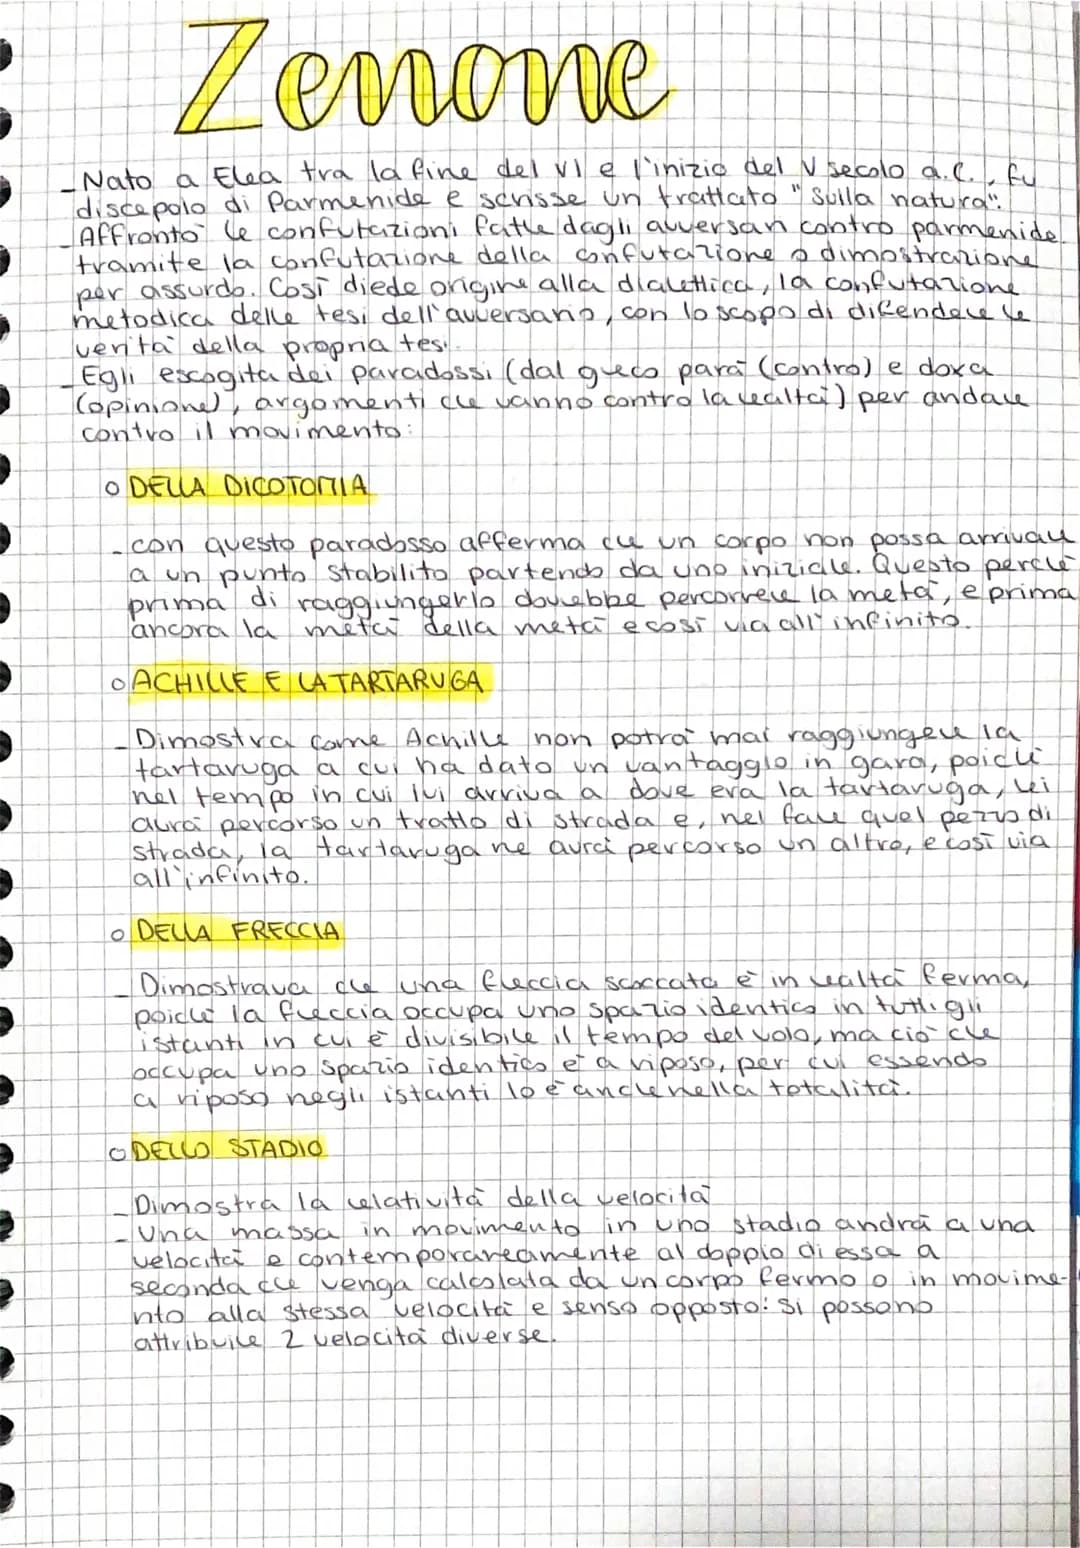 Zenone
- Nato a Elea tra la fine del VI e l'inizio del V secolo a.C., fu
discepolo di Parmenide e scrisse un trattato "Sulla natura".
- Affrontò le confutazioni fatte dagli avversari contro parmenide
tramite la confutazione della confutazione o dimostrazione
per assurdo. Così diede origine alla dialettica, la confutazione
metodica delle tesi dell'avversario, con lo scopo di difendere le
verità della propria tesi.
- Egli escogita dei paradossi (dal greco parà (contro) e doxa
(opinione), argomenti che vanno contro la realtà) per andare
contro il movimento:
o DELLA DICOTOMIA
- con questo paradosso afferma che un corpo non possa arrivare
a un punto stabilito partendo da uno iniziale. Questo perché
prima di raggiungerlo dovrebbe percorrere la metà, e prima
ancora la metà della metà e così via all'infinito.
o ACHILLE E LA TARTARUGA
- Dimostra come Achille non potrà mai raggiungere la
tartaruga a cui ha dato un vantaggio in gara, poiché
nel tempo in cui lui arriva a dove era la tartaruga, lei
avrà percorso un tratto di strada e, nel fare quel pezzo di
strada, la tartaruga ne avrà percorso un altro, e così via
all'infinito.
o DELLA FRECCIA
- Dimostrava che una freccia scoccata è in realtà ferma,
poiché la freccia occupa uno spazio identico in tutti gli
istanti in cui è divisibile il tempo del volo, ma ciò che
occupa uno spazio identico è a riposo, per cui essendo
a riposo negli istanti lo è anche nella totalità.
o DELLO STADIO
- Dimostra la relatività della velocità
- Una massa in movimento in uno stadio andrà a una
velocità e contemporaneamente al doppio di essa a
seconda che venga calcolata da un corpo fermo o in movime-
nto alla stessa velocità e senso opposto: si possono
attribuire 2 velocità diverse.